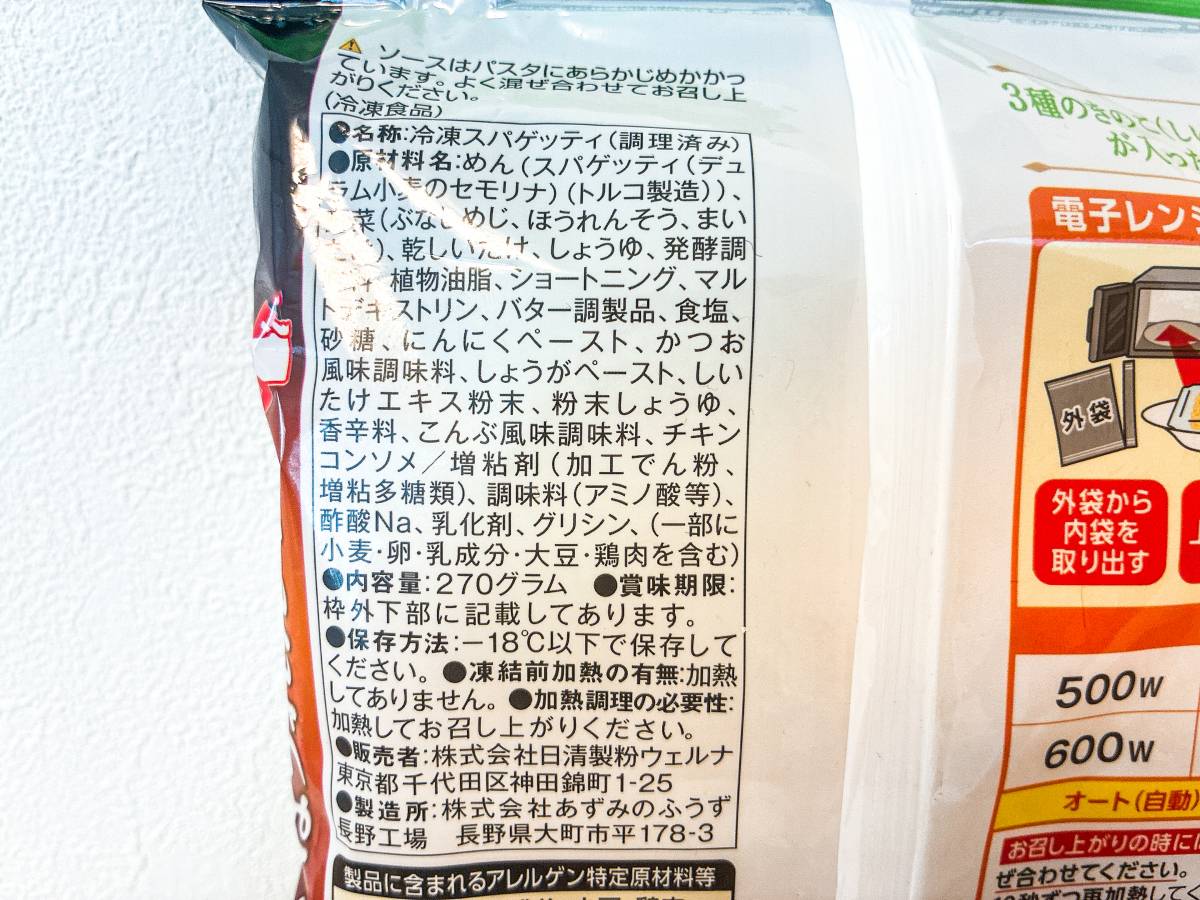 ⚠ ソースはパスタにあらかじめかかっ
ています。よく混ぜ合わせてお召し上
がりください。
(冷凍食品)
●名称:冷凍スパゲッティ(調理済み)
●原材料名:めん(スパゲッティ(デュ
ラム小麦のセモリナ)(トルコ製造))、
菜(ぶなしめじ、ほうれんそう、まい
)、乾しいたけ、しょうゆ、発酵調
植物油脂、ショートニング、マル
トデキストリン、バター調製品、食塩、
砂糖、にんにくペースト、かつお
風味調味料、しょうがペースト、しい
たけエキス粉末、粉末しょうゆ、
香辛料、こんぶ風味調味料、チキン
コンソメ／増粘剤(加工でん粉、
増粘多糖類)、調味料(アミノ酸等)、
酢酸Na、乳化剤、グリシン、(一部に
小麦・卵・乳成分・大豆・鶏肉を含む)
●内容量:270グラム ●賞味期限:
枠外下部に記載してあります。
●保存方法:−18℃以下で保存して
ください。●凍結前加熱の有無:加熱
してありません。●加熱調理の必要性:
加熱してお召し上がりください。
●販売者:株式会社日清製粉ウェルナ
東京都千代田区神田錦町1-25
●製造所:株式会社あずみのふうず
長野工場 長野県大町市平178-3
製品に含まれるアレルゲン特定原材料等
3種のきのこ(し
が入っ
電子レン
外袋
外袋から
内袋を
取り出す
500W
600W
オート(自動)
お召し上がりの時に
ぜ合わせてください。